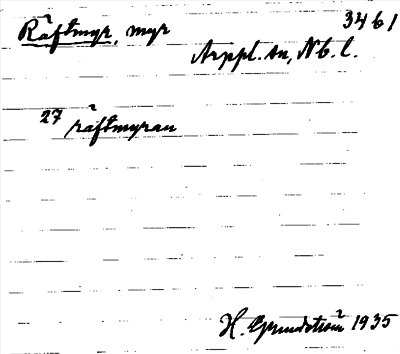 Råftmyr, myr 3461
Arppl. sn, Nb. l.
27 råftmyran
H. Grundström 1935